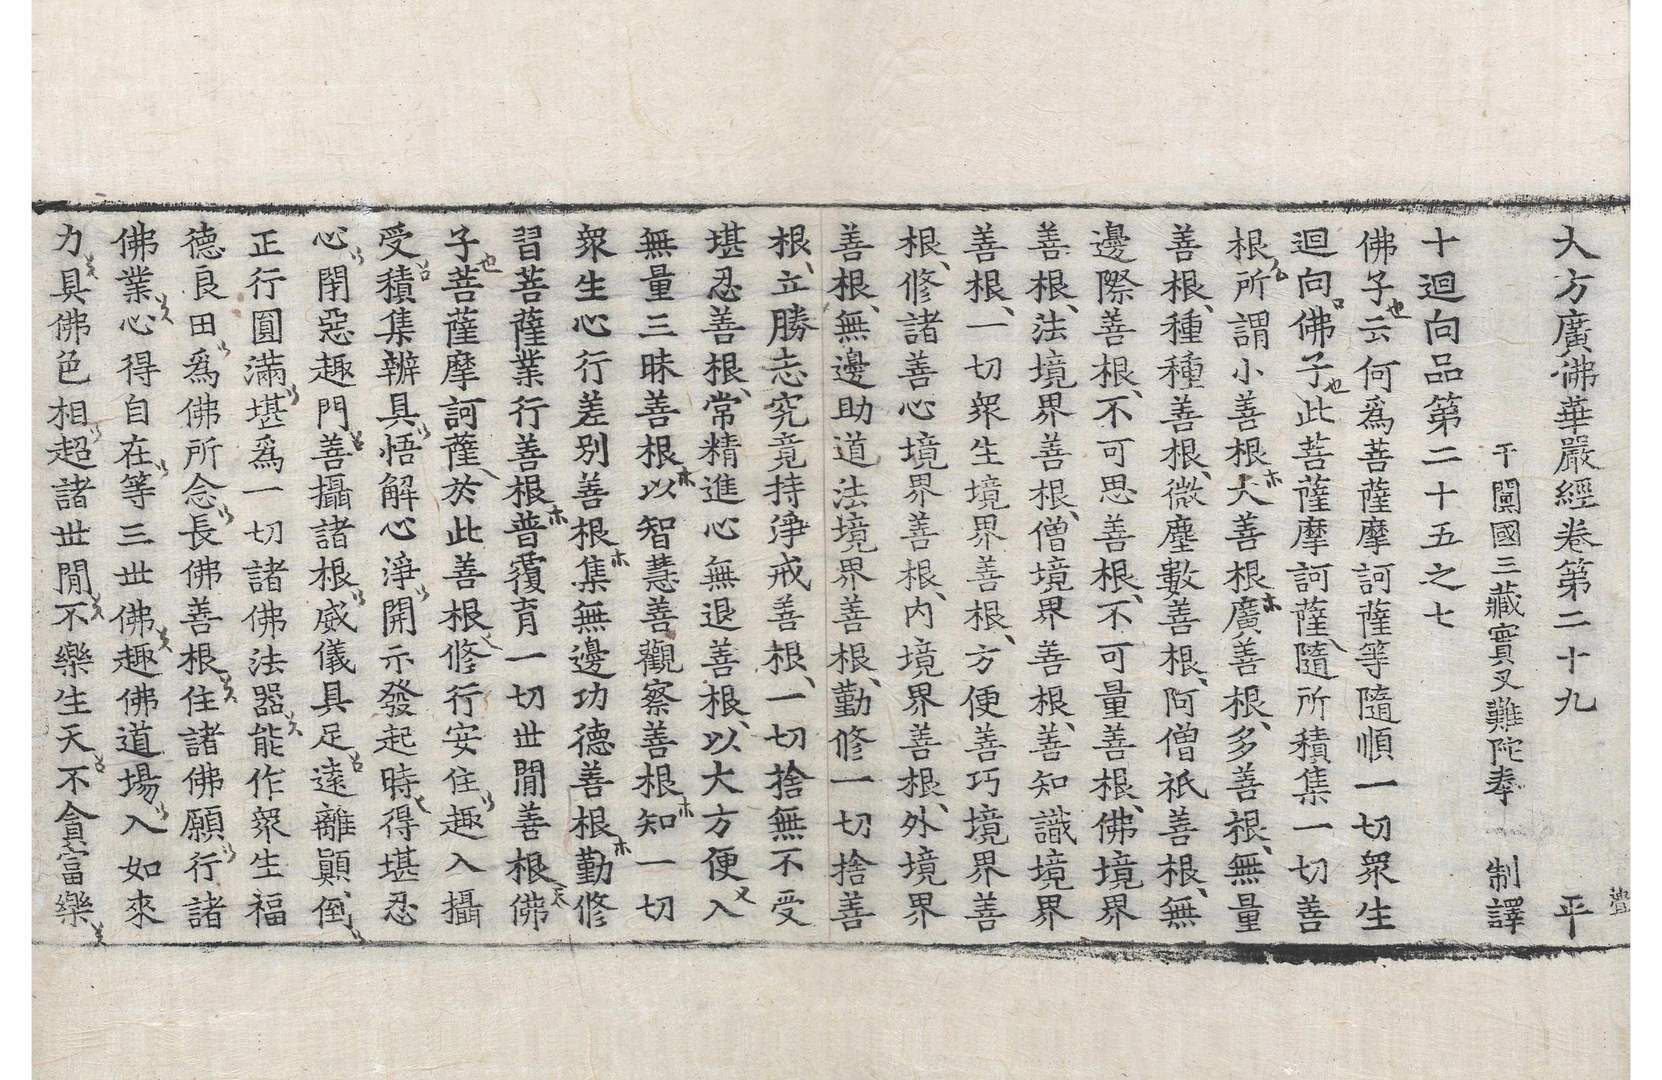 大方廣佛華嚴經卷第二十九 平
于闐國三藏實叉難陀奉 制譯
十迴向品第二十五之七
佛子云何爲菩薩摩訶薩等隨順一切衆生
迴向佛子此菩薩摩訶薩隨所積集一切善
根所謂小善根大善根廣善根多善根無量
善根種種善根微塵數善根阿僧祇善根無
邊際善根不可思善根不可量善根佛境界
善根法境界善根僧境界善根善知識境界
善根一切衆生境界善根方便善巧境界善
根修諸善心境界善根內境界善根外境界
善根無邊助道法境界善根勤修一切捨善
根立勝志究竟持淨戒善根一切捨無不受
堪忍善根常精進心無退善根以大方便入
無量三昧善根以智慧善觀察善根知一切
衆生心行差別善根集無邊功德善根勤修
習菩薩業行善根普覆育一切世閒善根佛
子菩薩摩訶薩於此善根修行安住趣入攝
受積集辦具悟解心淨開示發起時得堪忍
心閉惡趣門善攝諸根威儀具足遠離顚倒
正行圓滿堪爲一切諸佛法器能作衆生福
德良田爲佛所念長佛善根住諸佛願行諸
佛業心得自在等三世佛趣佛道場入如來
力具佛色相超諸世閒不樂生天不貪富樂